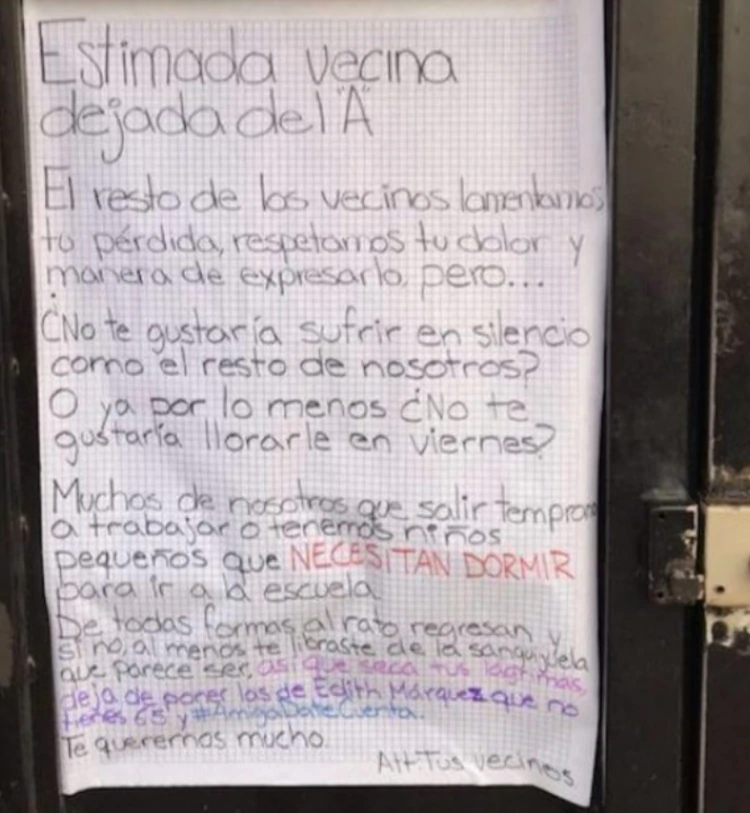 Estimada vecina
dejada del "A"
El resto de los vecinos lamentamos
tu pérdida, respetamos tu dolor y
manera de expresarlo, pero...
¿No te gustaría sufrir en silencio
como el resto de nosotros?
O ya por lo menos ¿No te
gustaría llorarle en viernes?
Muchos de nosotros que salir temprano
a trabajar o tenemos niños
pequeños que NECESITAN DORMIR
para ir a la escuela.
De todas formas, al rato regresan y
si no, al menos te libraste de la sanguijuela
que parece ser, así que seca tus lágrimas,
deja de poner las de Edith Márquez que no
tienes 65 y #AmigaDateCuenta.
Te queremos mucho.
Att: Tus vecinos